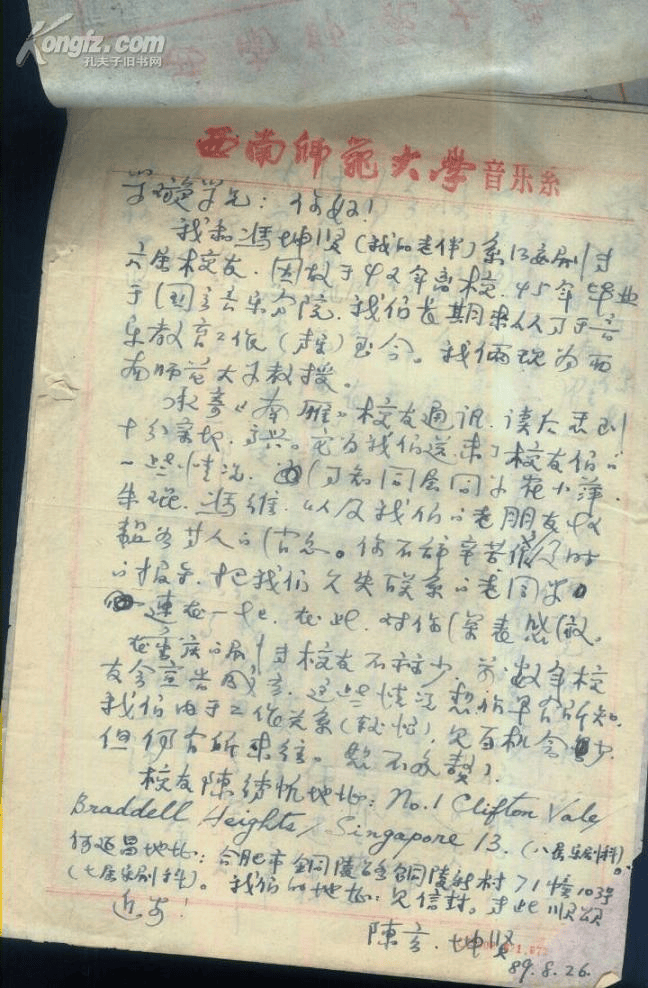 Kongfz.com
孔夫子旧书网
西南师范大学音乐系
学璇学兄：你好！
我和冯坤贤（我的老伴）系江安剧专
六届校友．因故于42年离校．45年毕业
于国立音乐分院．我们长期来从事于音
乐教育工作至今。我俩现为西
南师范大学教授。
承寄《南雁》校友通讯．读大悉到
十分亲切．高兴。它为我们送来了校友们的
一些情况．得知同届同学范小萍．
朱琨．冯维．以及我们的老朋友
等人的信息。你不辞辛苦
把我们久失联系的老同学
连在一起．在此．对你深表感激。
在重庆的剧专校友不在少．前数年校
友会宣告成立．这些情况想你早有所知．
我们由于工作关系（较忙）．见面机会少．
但仍有所来往。恕不多赘．
校友陈 地址：No.1 Clifton Vale/
Braddell Heights/Singapore 13.（八届乐剧科）。
何延昌地址：合肥市铜陵路铜陵新村71幢103号
（七届乐剧科）。我们的地址：见信封。专此顺颂
近安！
陈言．坤贤
89.8.26.